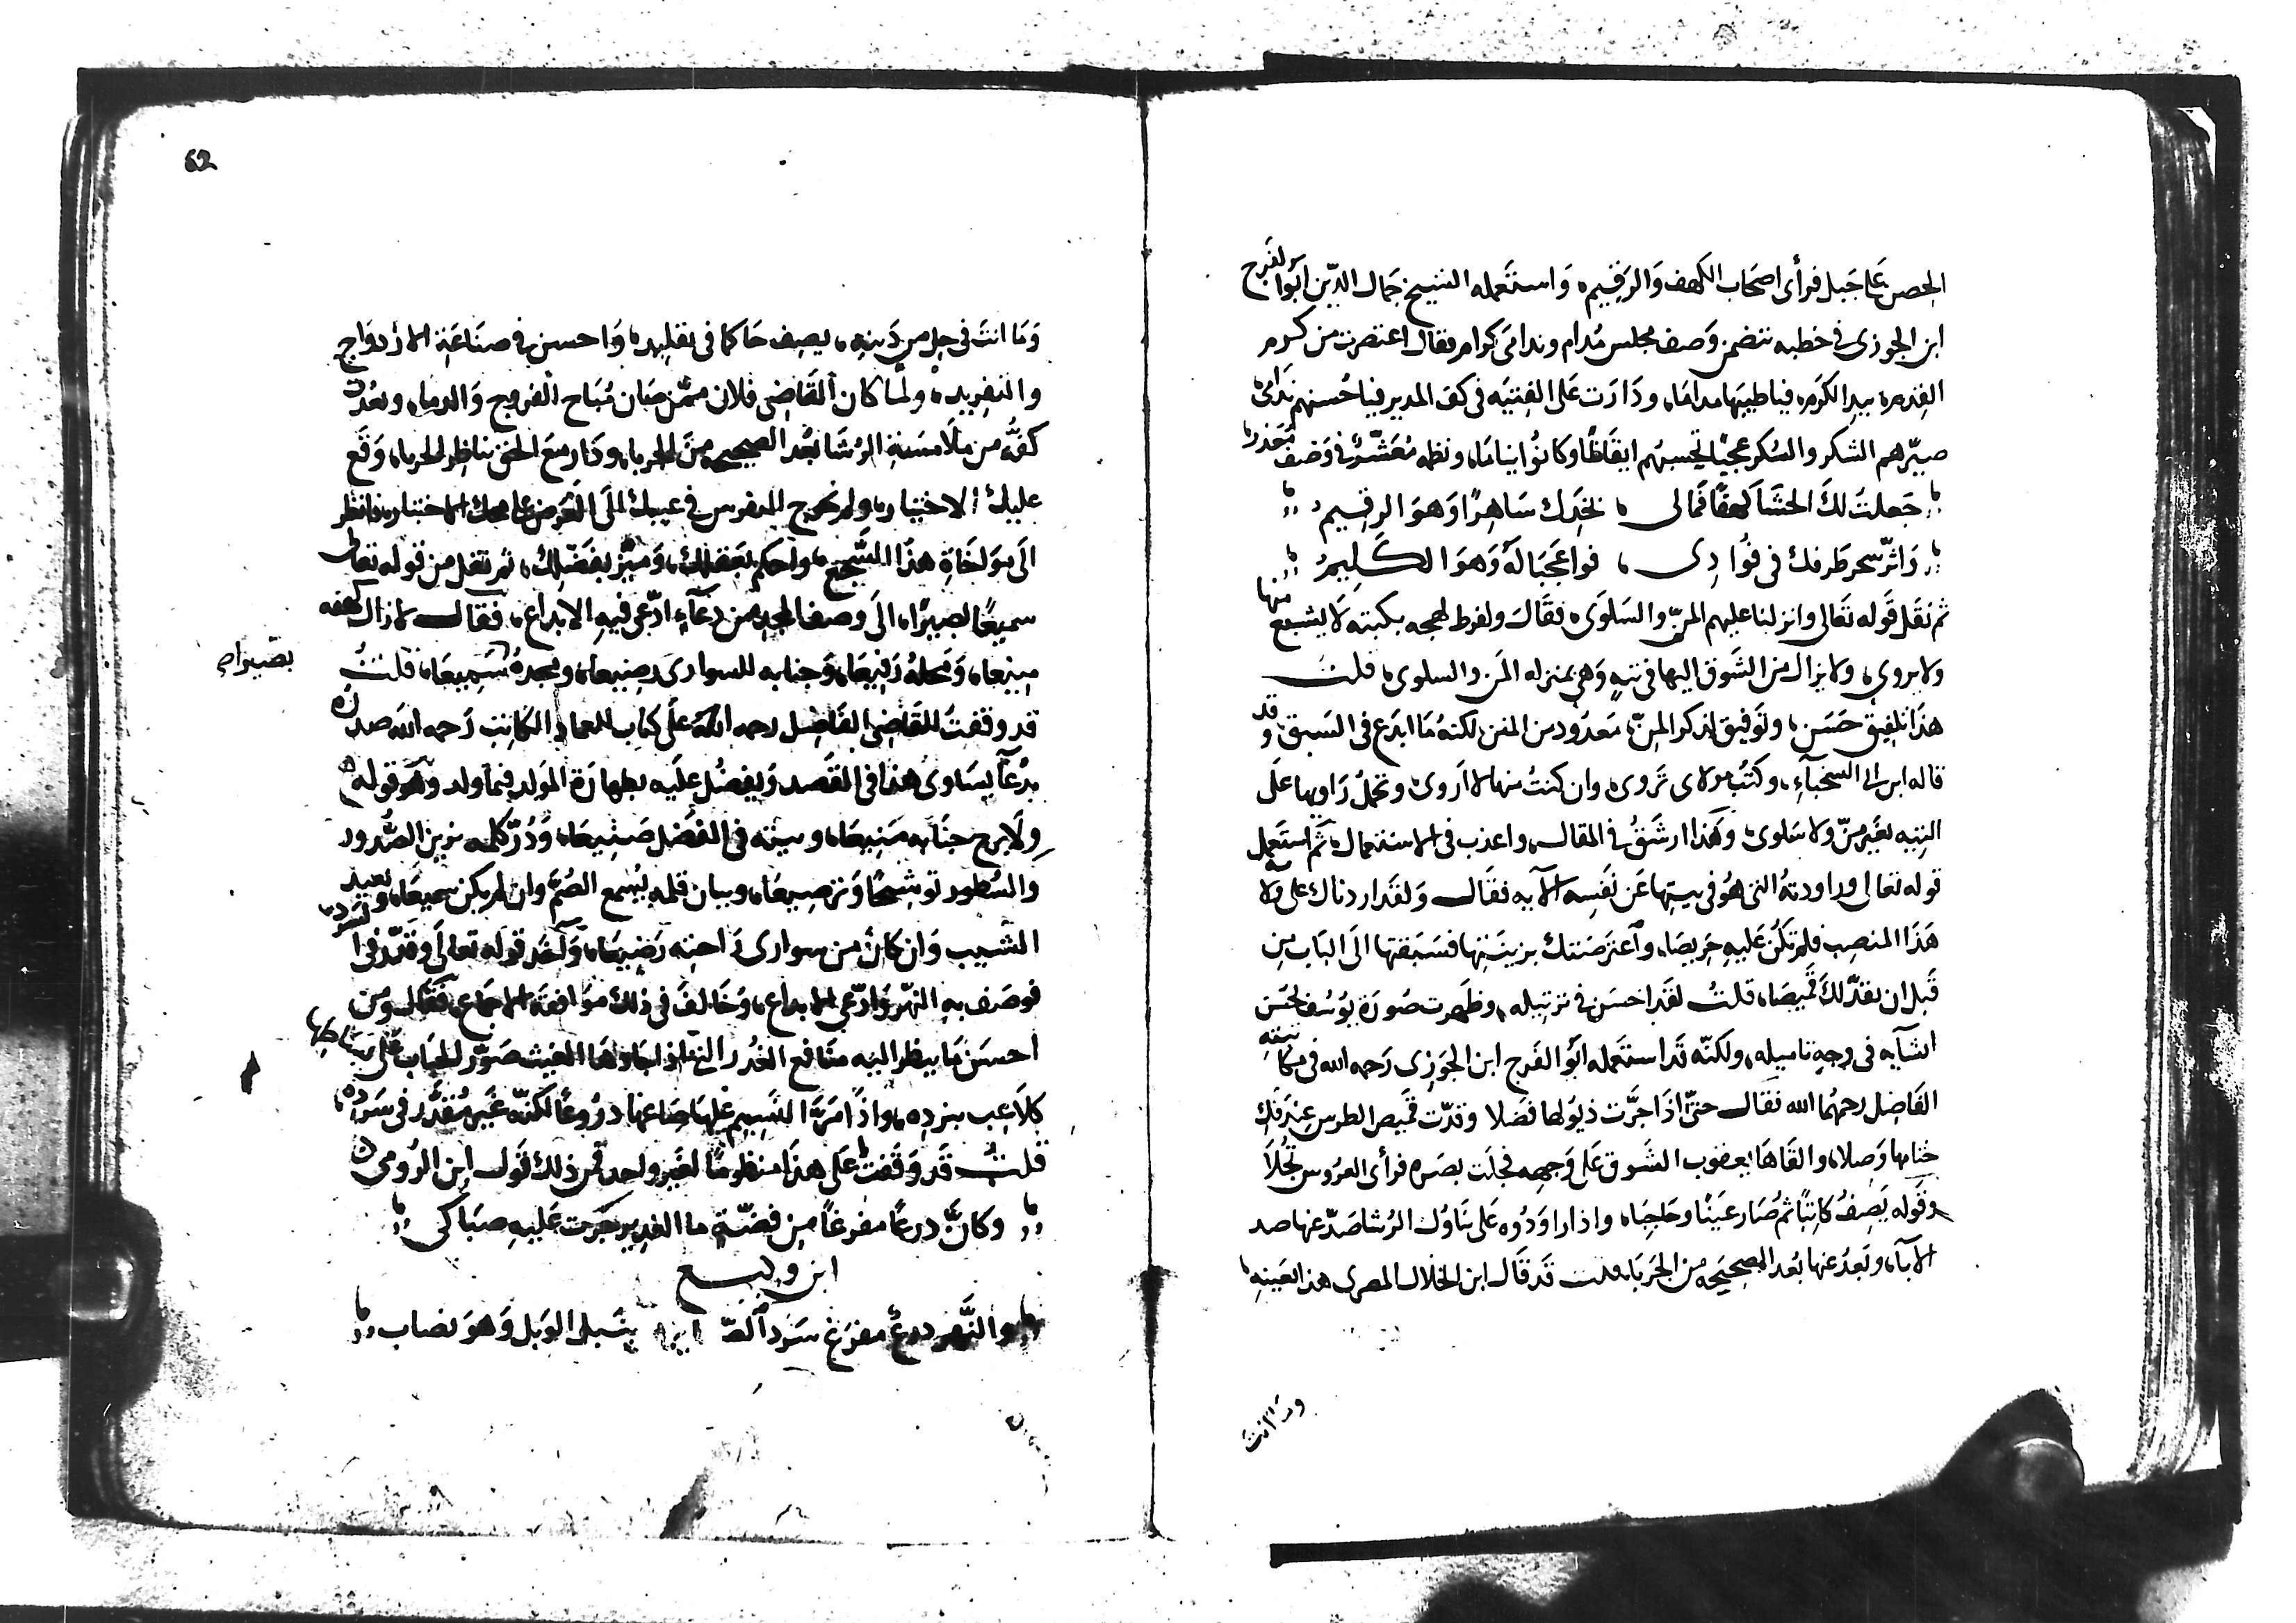 الحصن على جبل فرأى اصحاب الكهف وَالرَقيم، وَاستَعمله الشيخ جمَال الدّين ابَوُا لفَرج
ابن الجوزى فى خطبه تتضمن وَصف مجلس مُدام وندامَى كرام فقال اعتصرت من كرم
القِدم، بيد الكرَم، فيا طيبَها مدامَا، ودَارَت عَلى الفِتيَه فى كفّ المدير فيا حُسنهم نَدَامَى
صيّرهم الشكر والسُكر عجبًا تحسبهُم ايقَاظًا وكانوُا نيَامَا، ونظمه مُعَشّر فى وَصف مُعَذر
جَعلتُ لكَ الحَشَا كهفًا فمالى ، بخَدِك سَاهِرًا وَهوَ الرقيمُ
وَاثرّ سحر طَرفك فى فُوادِى ، فواعَجَبَا لهُ وَهوَ الكَلِيمُ
ثم نقَل قَوله تَعالى وانزلنا عليهم المنّ والسَلوَى، فقَالَ ولفرط لهجه بكتبه لَا يشبع منها
ولا يروى، ولا يزال من الشَوق اليها فى تيهٍ وَهى بمنزله المَن والسلوى، قلتُ
هذَا تلفيق حَسَن، وتَوفيق لذكر المنّ، مَعدَود من المنن، لكنهُ مَا ابدَع فى السَبق وقد
قاله ابن ابى السخبآءِ، وكتبُ مولاى تَروى، وان كنتُ منها لا اَروى، وتحملُ رَاويها عَلَى
التيه بغَير منّ ولا سَلوى، وهَذا ارشَقُ فى المقال، واعذب فى الاستعمال، ثم استَعمل
قوله تعالى وراودتهُ التى هُوَ فى بيتها عَن نَفسِه الآيه فقَال وَلقَد اردناك على ولايه
هَذَا المنصِب فلم تكُن عَليهِ حَرِيصَا، واَعتَرضَتك بزينَتِها فسَبَقتها الَى البَاب مِن
قَبل ان تقدّ لكَ قَميصَا، قلتُ لقَد احسَن فى ترتيله، وظهرت صُورَة يوُسُف لحُسن
اتيآنه فى وجهِ تاميله، ولكنّه قَد استَعمله ابَوُ الفَرج ابن الجَوزى رَحمه الله فى مكاتبتِهِ
الفَاضِل رحمهُما الله فقَال حتىّ اذَا جَرَّت ذيوُلها فضلا وقدّت قَميص الطرس عِندَ فَك
خِتَامها وَصلا، والقَاها يعقوب الشَوق عَلى وَجهِه فجلَت بصَره فرأى العرُوس تُجلَا
وقَوله يَصِفُ كَاتِبًا ثم صَارَ عَينًا وحَاجِبًا، واذا راوَدُوه عَلى تَناوُل الرُشا صَدّ عنها صد
الآبآء، وبَعدُ عنها بُعد الصحيحَه من الجَرَبَا، قلت قَد قَال ابن الخلال المصرى هذا بعَينِه
وما انت
وَمَا انتَ فى حِل من دَينِه، يصِف حَاكما فى تقليده، وَاحسن فى صنَاعَةِ الازدوَاج
والتفريد، ولمَا كان القَاضِى فلان ممّن صَان مُبَاح الفروج وَالدماء، وبعُدَت
كفُّه من ملَامسَة الرُشَا بُعد الصحيحه منَ الجربا، ودَار مَع الحَق
عليكَ الاختيار، ولم نحوج المتفرس فى عيبك الَى الغرض على الاختبار، فانظر
الَى موَاخَاةِ هذَا السَّجع، واحكم بعَقلكَ، وَميّز بفضلِكَ، ثم نقل من قوله تعالى
سميعًا بصيرًا، الَى وصف المجد من دعَآءٍ ادّعى فيهِ الابداع، فقال لا زال كهفه
منيعا، وَمحلهُ رَفيعَا، وَجنابه للسوارى رضِيعا، ومجدهُ سَمِيعَا، قلتُ
بصَيراه
قد وقفتُ للقَاضِى الفَاضِل رحمه اللّه عَلى كتاب للعماد الكاتب رَحمه الله صدرَه
بدُعآ يسَاوى هذا فى القَصد وَيفضُل علَيه بطهارَة المَولد فيمَا ولد وهَو قوله
وِلَا برح جنَابه مَنِيعَا، وسيته فى الفَضل صَنِيعَا، وَدُرّ كلمه يزين الصُّدور
والسُطور توشيحًا وَترصِيعَا، وبيان قلمه يُسمع الصُمّ وان لم يكن سميعَا، وبعيد
المشيب وَان كانَ من سوارى رَاحته رَضيعَا، وَاَخذ قوله تعالى وقدّر فى السَرد
فوصَف بهِ النهَر وَادّعى الابداع، وَخَالفَ فى ذلك موَافقَة الاجماع، فقَال ومن
احسَن مَا ينظر اليه متَاقع الغُدر التى اذا جَاوها الغيث صَوّر الحبَاب على بسَاطها
كلاَعِب بنردِه، واذَا مَرّ النَسِيم عَليهَا صَاغها درُوعًا لكنّه غَير مُقدَّر فى سَرده،
قلتُ قَد وَقفتُ عَلى هذَا منظومًا لغَير واحد فمن ذلك قَول ابن الرُومى
وكانّ درعًا مفرغًا مِن فضّةٍ ما الغدير جَرَت عَليهِ صبَاكى
ابن وكيع
والنَّهر درعٌ مفرَغ سَرد بنبل الوَبل وَهوَ نصاب
62